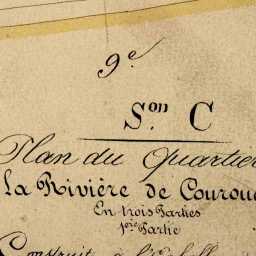 9.e
S.on C
Plan du Quartier
La Rivière de Courou
En trois Parties
1ère Partie
Construit à l'